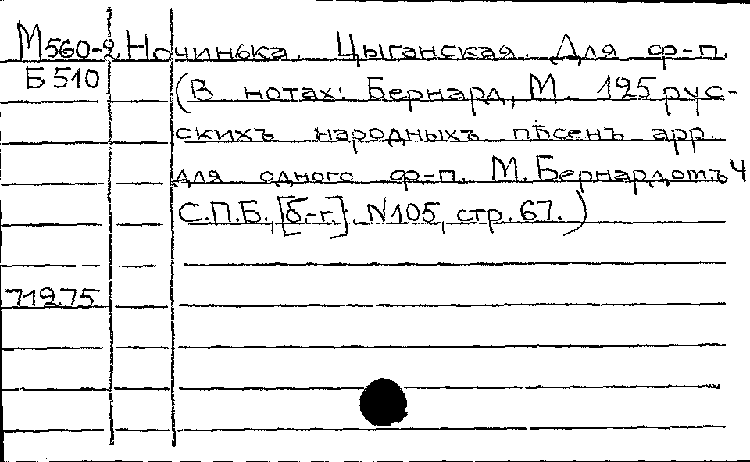 М560-2 Ночинька. Цыганская. Для ф-п.
Б510 (В нотах: Бернард, М. 125 рус-
скихъ народныхъ пѣсенъ арр.
для одного ф-п. М. Бернардомъ Ч
С.П.Б., [б-г.]. N105, стр. 67.)
71975